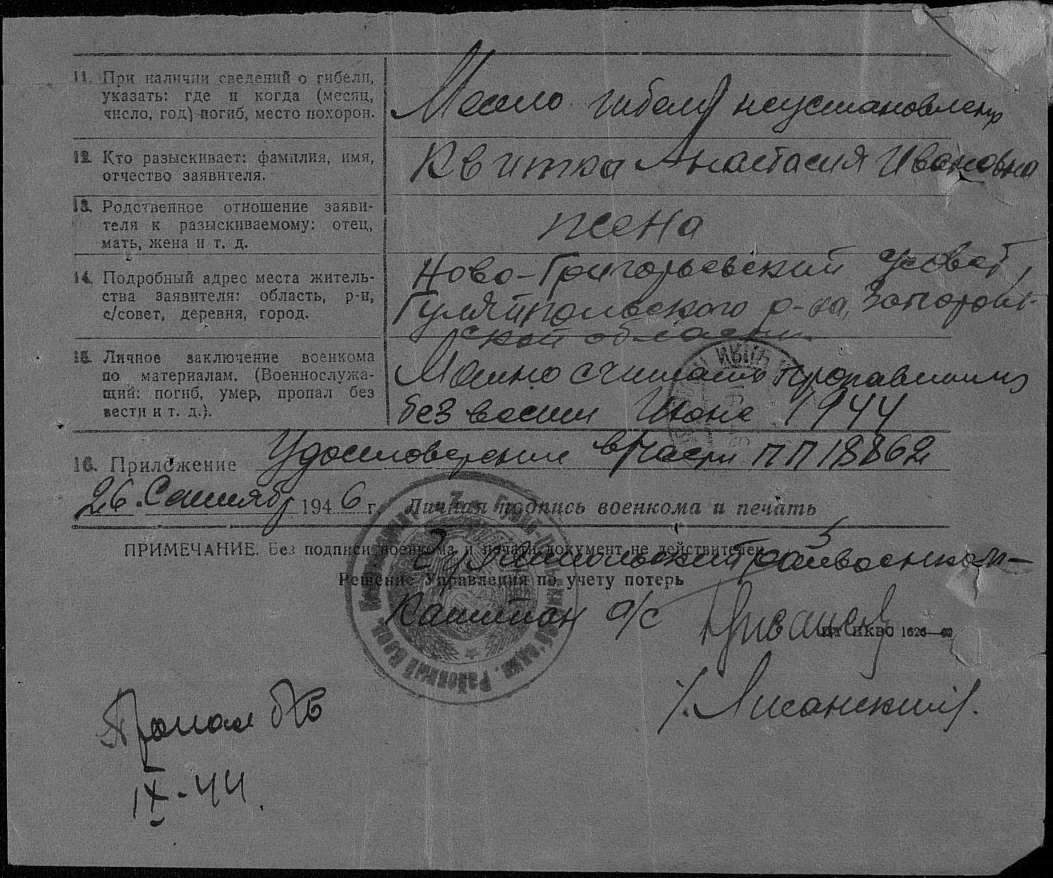 11. При наличии сведений о гибели,
указать: где и когда (месяц,
число, год) погиб, место похорон.
Место гибели неустановлено
12. Кто разыскивает: фамилия, имя,
отчество заявителя.
Квитка Анастасия Ивановна
13. Родственное отношение заяви-
теля к разыскиваемому: отец,
мать, жена и т. д.
жена
14. Подробный адрес места житель-
ства заявителя: область, р-н,
с/совет, деревня, город.
Ново-Григорьевский с/совет,
Гуляйпольского р-на, Запорож-
ской области
15. Личное заключение военкома
по материалам. (Военнослужа-
щий: погиб, умер, пропал без
вести и т. д.).
Можно считать пропавшим
без вести Июне 1944
16. Приложение Удостоверение в/части ПП 18862
26 Сентября 1946 г. Личная подпись военкома и печать
ПРИМЕЧАНИЕ. Без подписи военкома и печати документ не действителен.
Гуляйпольский райвоенком
Решение Управления по учету потерь
Капитан а/с
НКВО 1626—
/Лисанский/.
Пропал б/в
IX-44.